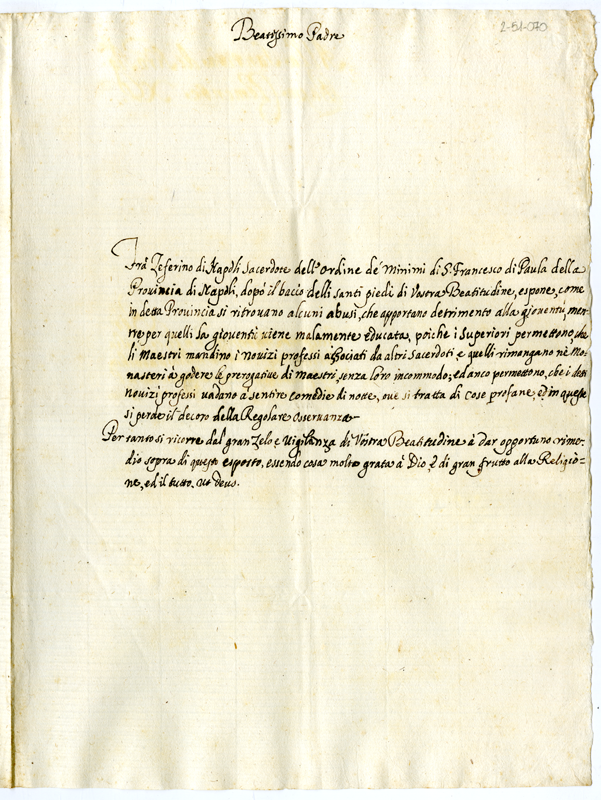 2-51-070
Beatissimo Padre
Frà Zeferino di Napoli Sacerdote dell'ordine de' Minimi di S. Francesco di Paula della
Provincia di Napoli, dopò il baccio delli santi piedi di Vostra Beatitudine, espone, come
in detta Provincia si ritrovano alcuni abusi, che apportano detrimento alla gioventù, men-
tre per quelli la gioventù viene malamente educata, poiche i Superiori permettono, che
li Maestri mandino i novizi professi associati da altri Sacerdoti, e quelli rimangano nè Mo-
nasteri à godere le prerogative di maestri, senza loro incommodo; ed anco permettono, che i detti
novizi professi vadano à sentire comedie di notte, ove si tratta di cose profane, ed in queste
si perde il decoro della Regolare osservanza
Per tanto si ricorre dal gran zelo e vigilanza di Vostra Beatitudine à dar opportuno rime-
dio sopra di questo esposto, essendo cosa molto grata à Dio, e di gran frutto alla Religio-
ne, ed il tutto. Ut deus.